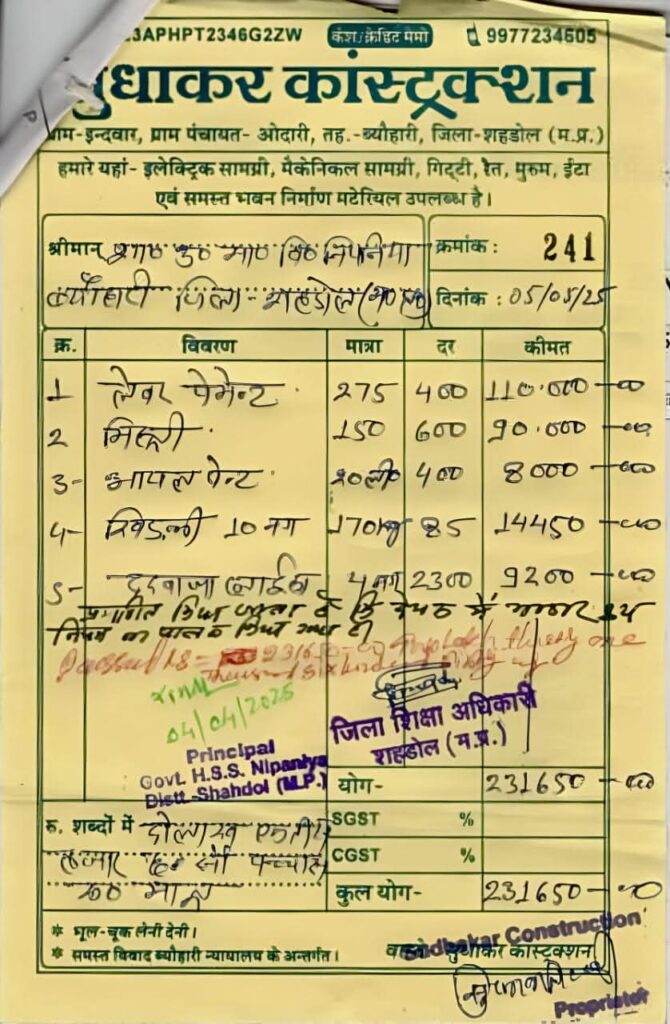 3APHPT2346G2ZW कैश/क्रेडिट मेमो 9977234605
सुधाकर कांस्ट्रक्शन
ग्राम-इन्दवार, ग्राम पंचायत- ओदारी, तह.-ब्यौहारी, जिला-शहडोल (म.प्र.)
हमारे यहां- इलेक्ट्रिक सामग्री, मैकेनिकल सामग्री, गिट्टी, रेत, मुरुम, ईटा
एवं समस्त भवन निर्माण मटेरियल उपलब्ध है।
श्रीमान् शा० उ० मा० वि० निपनिया क्रमांक : 241
ब्यौहारी जिला- शहडोल (म०प्र०) दिनांक : 05/05/25
क्र. विवरण मात्रा दर कीमत
1 लेबर पेमेन्ट 275 400 110.000-00
2 मिस्त्री 150 600 90.000-00
3- आयल पेन्ट 20ली० 400 8000-00
4- खिड़की 10 नग 170kg 85 14450-00
5- दरवाजा 4 नग 2300 9200-00
प्रमाणित किया जाता है कि में भण्डार क्रय
नियम का पालन किया गया है।
Passed Rs= 231650 thirty one
thousand six hundred fifty
04/04/2025
Principal
Govt. H.S.S. Nipaniya
Distt-Shahdol (M.P.)
जिला शिक्षा अधिकारी
शहडोल (म.प्र.)
योग- 231650-00
SGST %
CGST %
कुल योग- 231650-00
रु. शब्दों में दो लाख एकतीस
हजार छः सौ पच्चास
रु० मात्र
* भूल-चूक लेनी देनी।
* समस्त विवाद ब्यौहारी न्यायालय के अन्तर्गत।
वास्ते सुधाकर कांस्ट्रक्शन
Sudhakar Construction
Proprietor